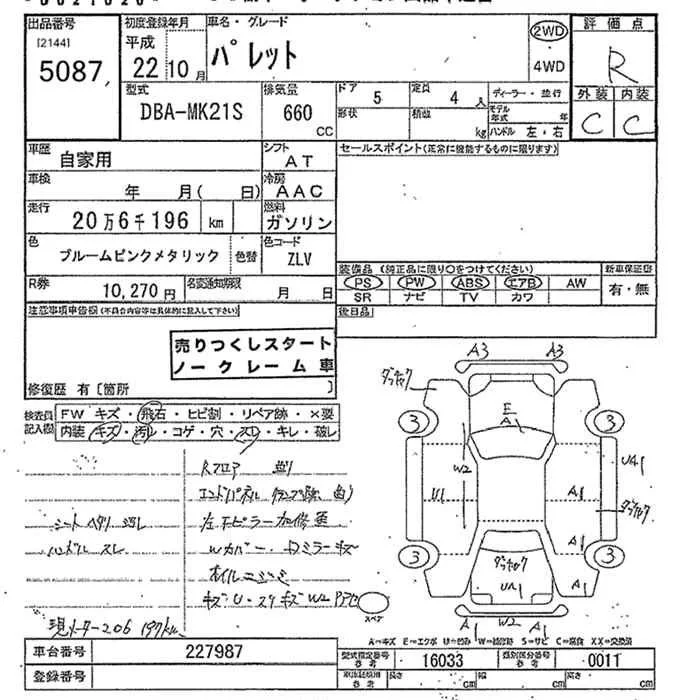 出品番号
[2144]
5087
初度登録年月
平成
22 10月
車名・グレード
パレット
2WD
・
4WD
評価点
R
外装 内装
C C
型式
DBA-MK21S
排気量
660 CC
ドア
5
定員
4 人
形状
積数 kg
ディーラー・並行
モデル年式 年
ハンドル 左・右
車歴
自家用
シフト
AT
セールスポイント(正常に機能するものに限ります)
車検
年 月( 日)
冷房
AAC
走行
20万6千196 km
燃料
ガソリン
色
ブルームピンクメタリック
色替
色コード
ZLV
装備品 (純正品に限り○をつけてください)
新車保証書
PS PW ABS エアB AW
有・無
SR ナビ TV カワ
R券
10,270円
名変通知期限
月 日
注意事項申告欄(不具合内容等は具体的に記入して下さい)
後日品
売りつくしスタート
ノークレーム車
修復歴 有〔箇所 〕
検査員記入欄
FW キズ・飛石・ヒビ割・リペア跡・×要
内装・キズ・汚レ・コゲ・穴・スレ・キレ・破レ
Rフロア 曲り
シート ヘタリ 汚レ
ハンドル スレ
オイルニジミ
現メーター206 197km
A3 A3
ダッチャク
3 3
E
A1
W2
U1
UA1
A1
ダッチャク
A1
3 3
ダッチャク
UA1
A1
スペア
A1 W2 A1
A=キズ E=エクボ U=凹み W=補修跡 S=サビ C=腐食 XX=交換済
車台番号
227987
型式指定番号 参考
16033
類別区分番号 参考
0011
登録番号
長さ cm 幅 cm 高さ cm